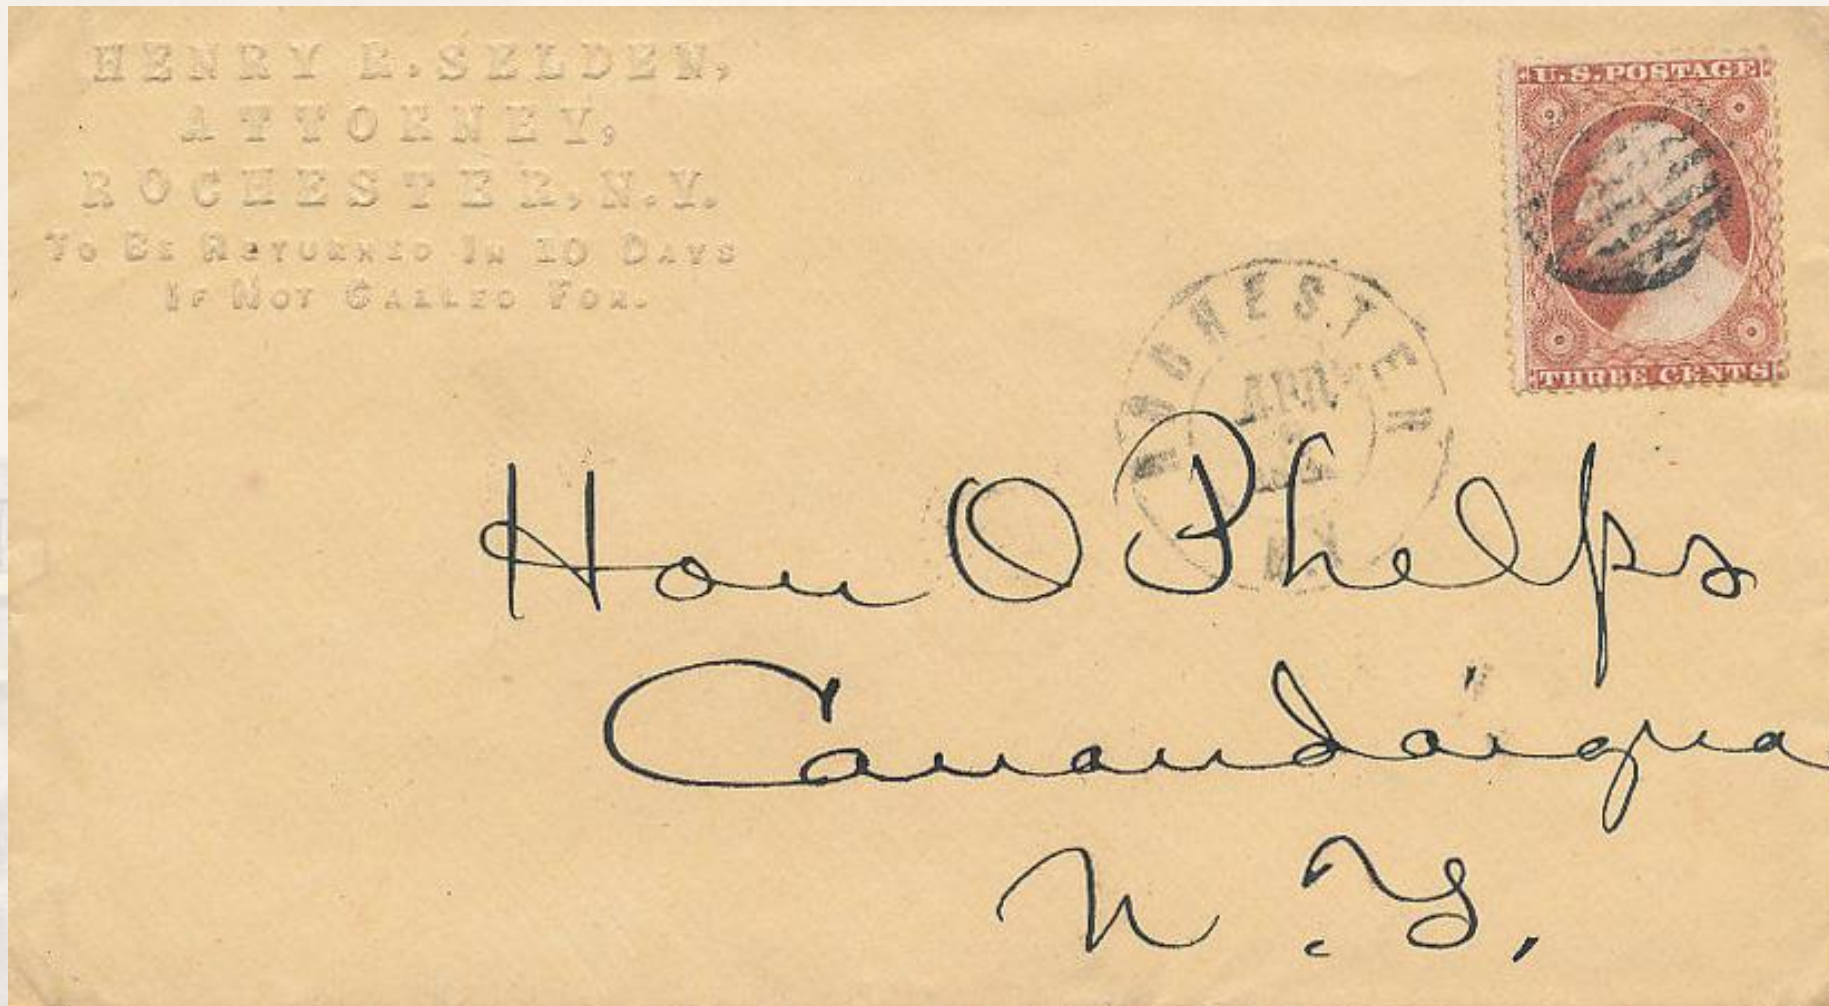 HENRY R. SELDEN,
ATTORNEY,
ROCHESTER, N.Y.
TO BE RETURNED IN 10 DAYS
IF NOT CALLED FOR.
U.S. POSTAGE
THREE CENTS
ROCHESTER
N.Y.
Hon O Phelps
Canandaigua
N.Y.